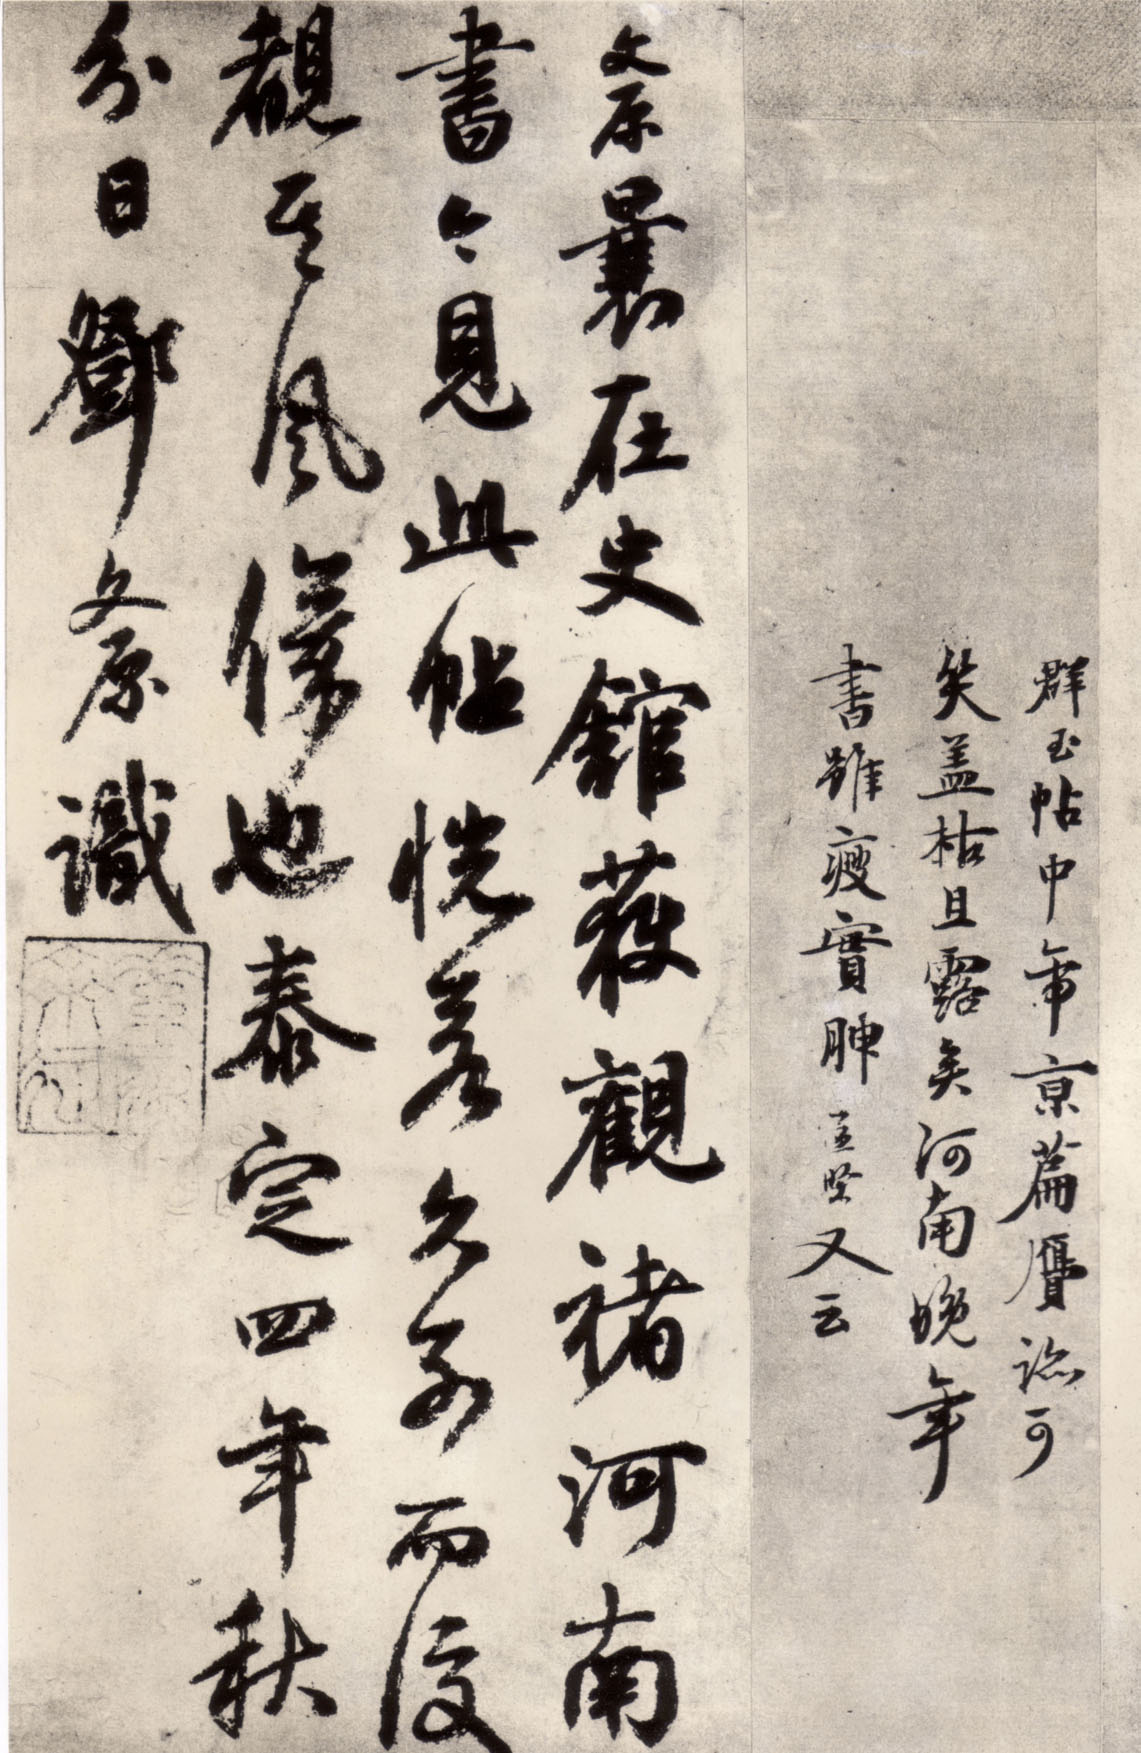 群玉帖中帝京篇贗跡可
笑盖枯且露矣河南晚年
書雖瘦實腴 孟堅又云
文原曩在史館獲觀褚河南
書今見此帖恍若久別而復
覩其風儀也泰定四年秋
分日鄧文原識